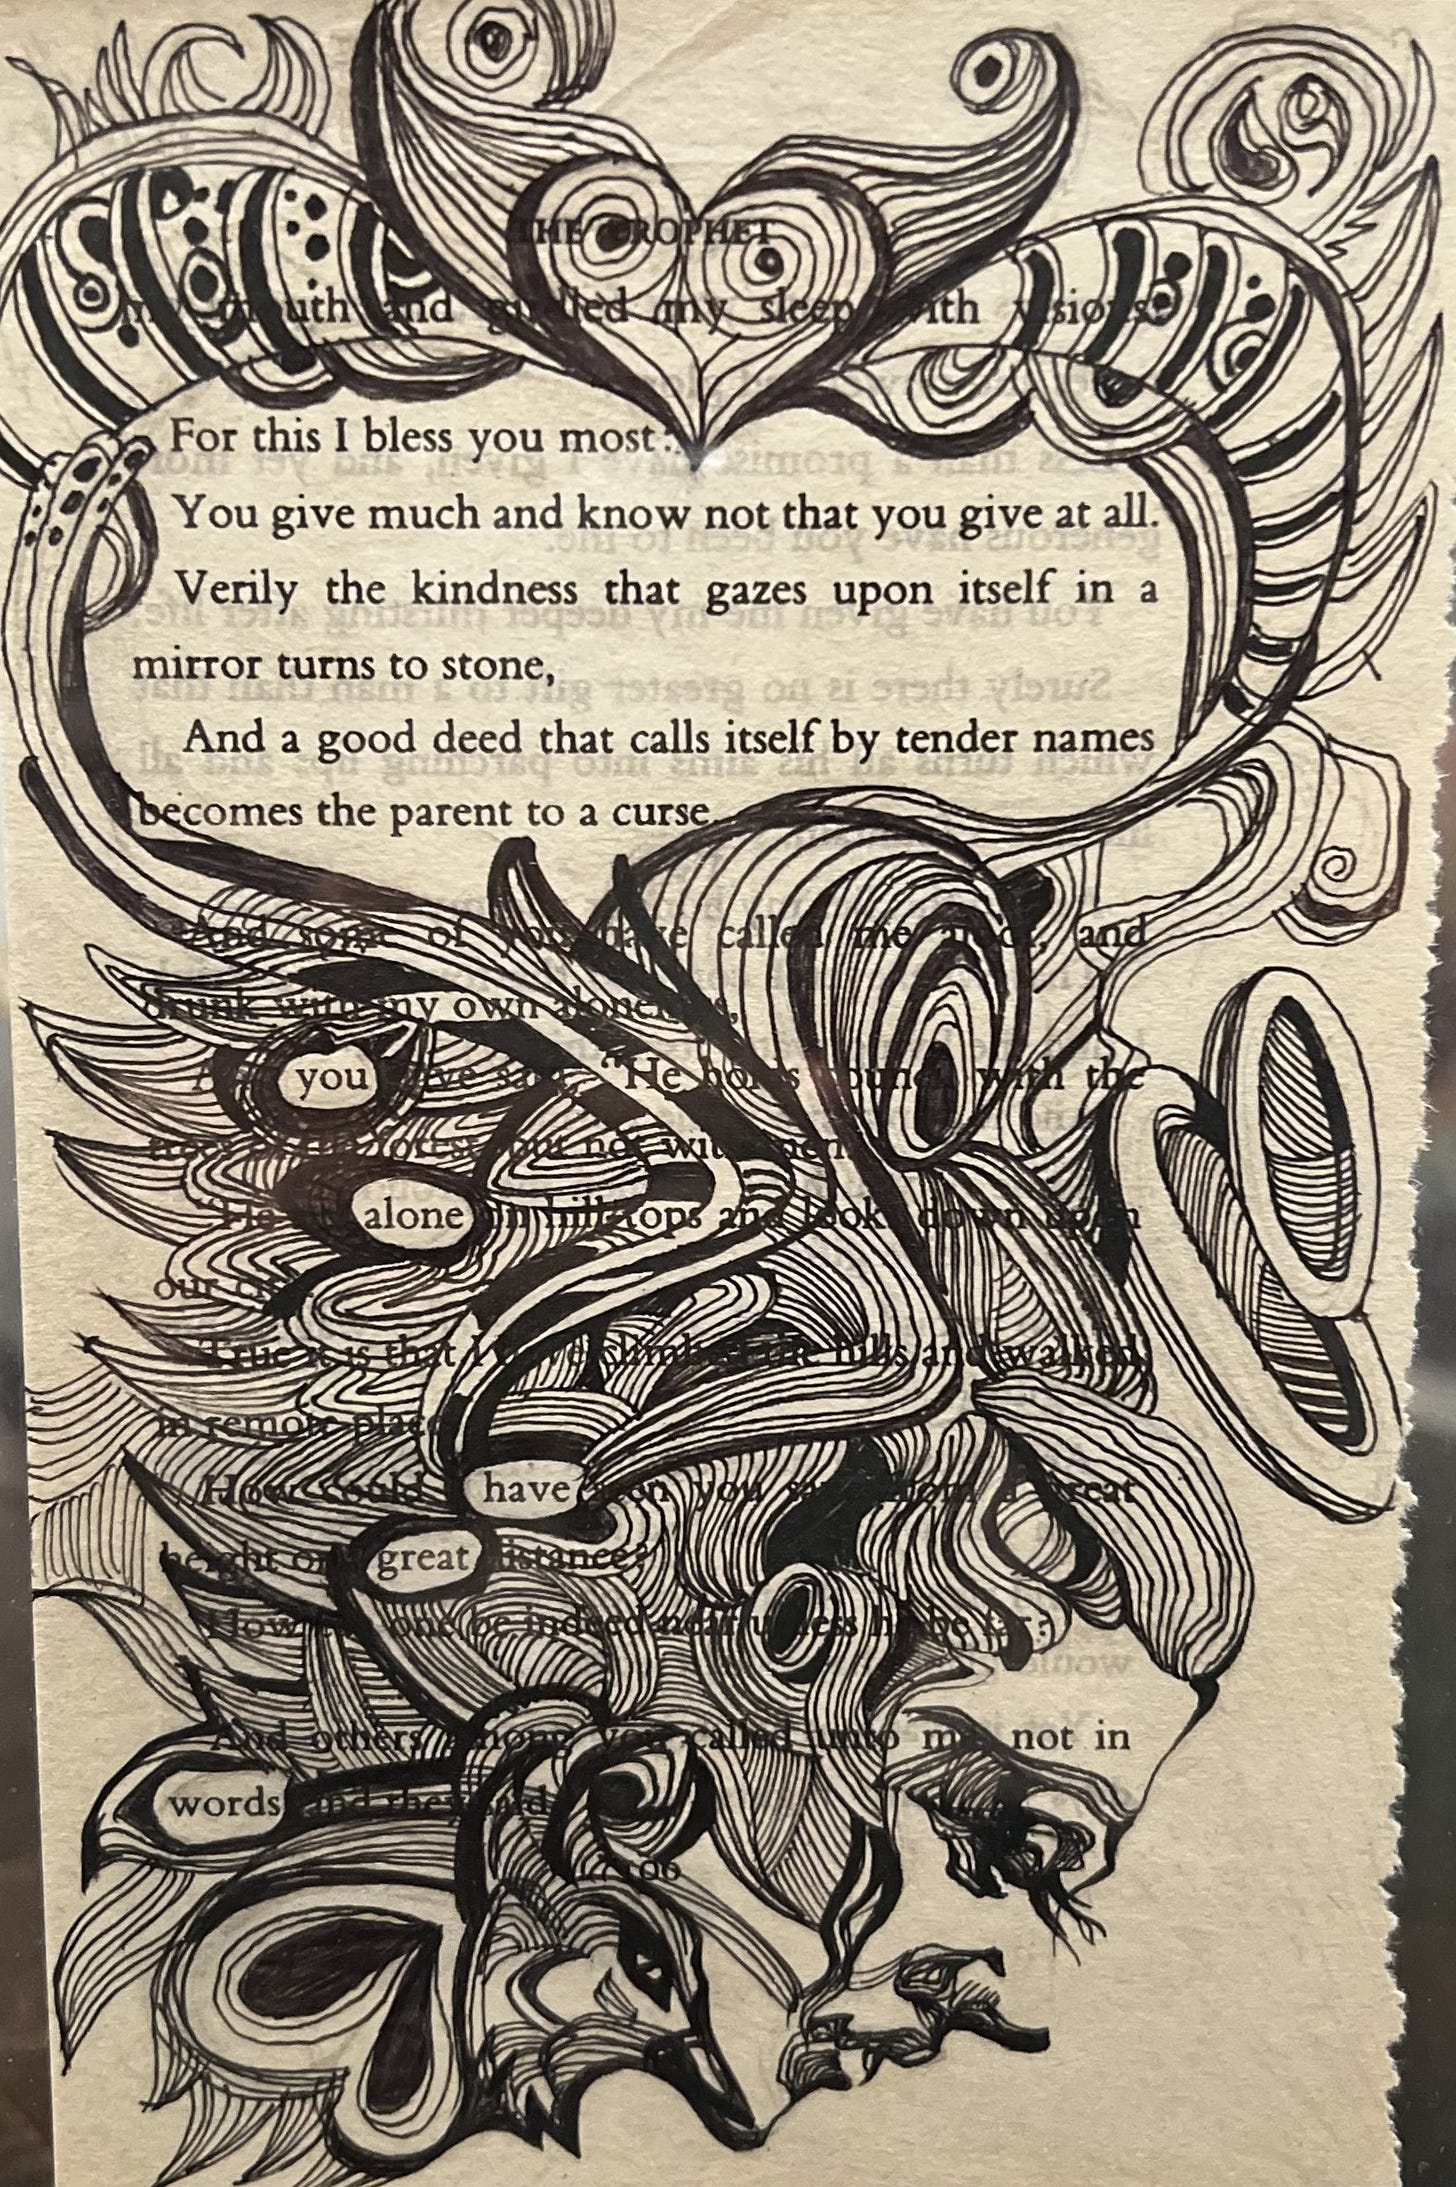 THE PROPHET
mouth and girdled my sleep with visions?
For this I bless you most:
You give much and know not that you give at all.
Verily the kindness that gazes upon itself in a
mirror turns to stone,
And a good deed that calls itself by tender names
becomes the parent to a curse.
And some of you have called me aloof, and
drunk with my own aloneness,
you have said, "He holds council with the
trees of the forest, but not with men.
"He alone on hill-tops and looks down upon
our city."
True it is that I have climbed the hills and walked
in remote places.
How could I have seen you save from a great
height or great distance?
How can one be indeed near unless he be far?
And others among you called unto me, not in
words, and they said
106